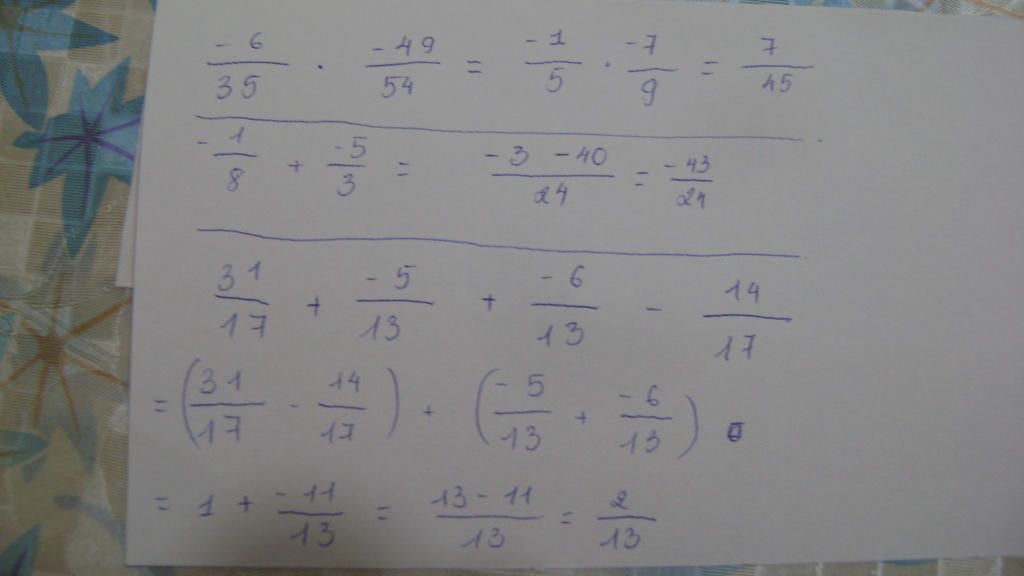 -6/35 . -49/54 = -1/5 . -7/9 = 7/45
-1/8 + -5/3 = -3 -40/24 = -43/24
31/17 + -5/13 + -6/13 - 14/17
= (31/17 - 14/17) + (-5/13 + -6/13)
= 1 + -11/13 = 13-11/13 = 2/13